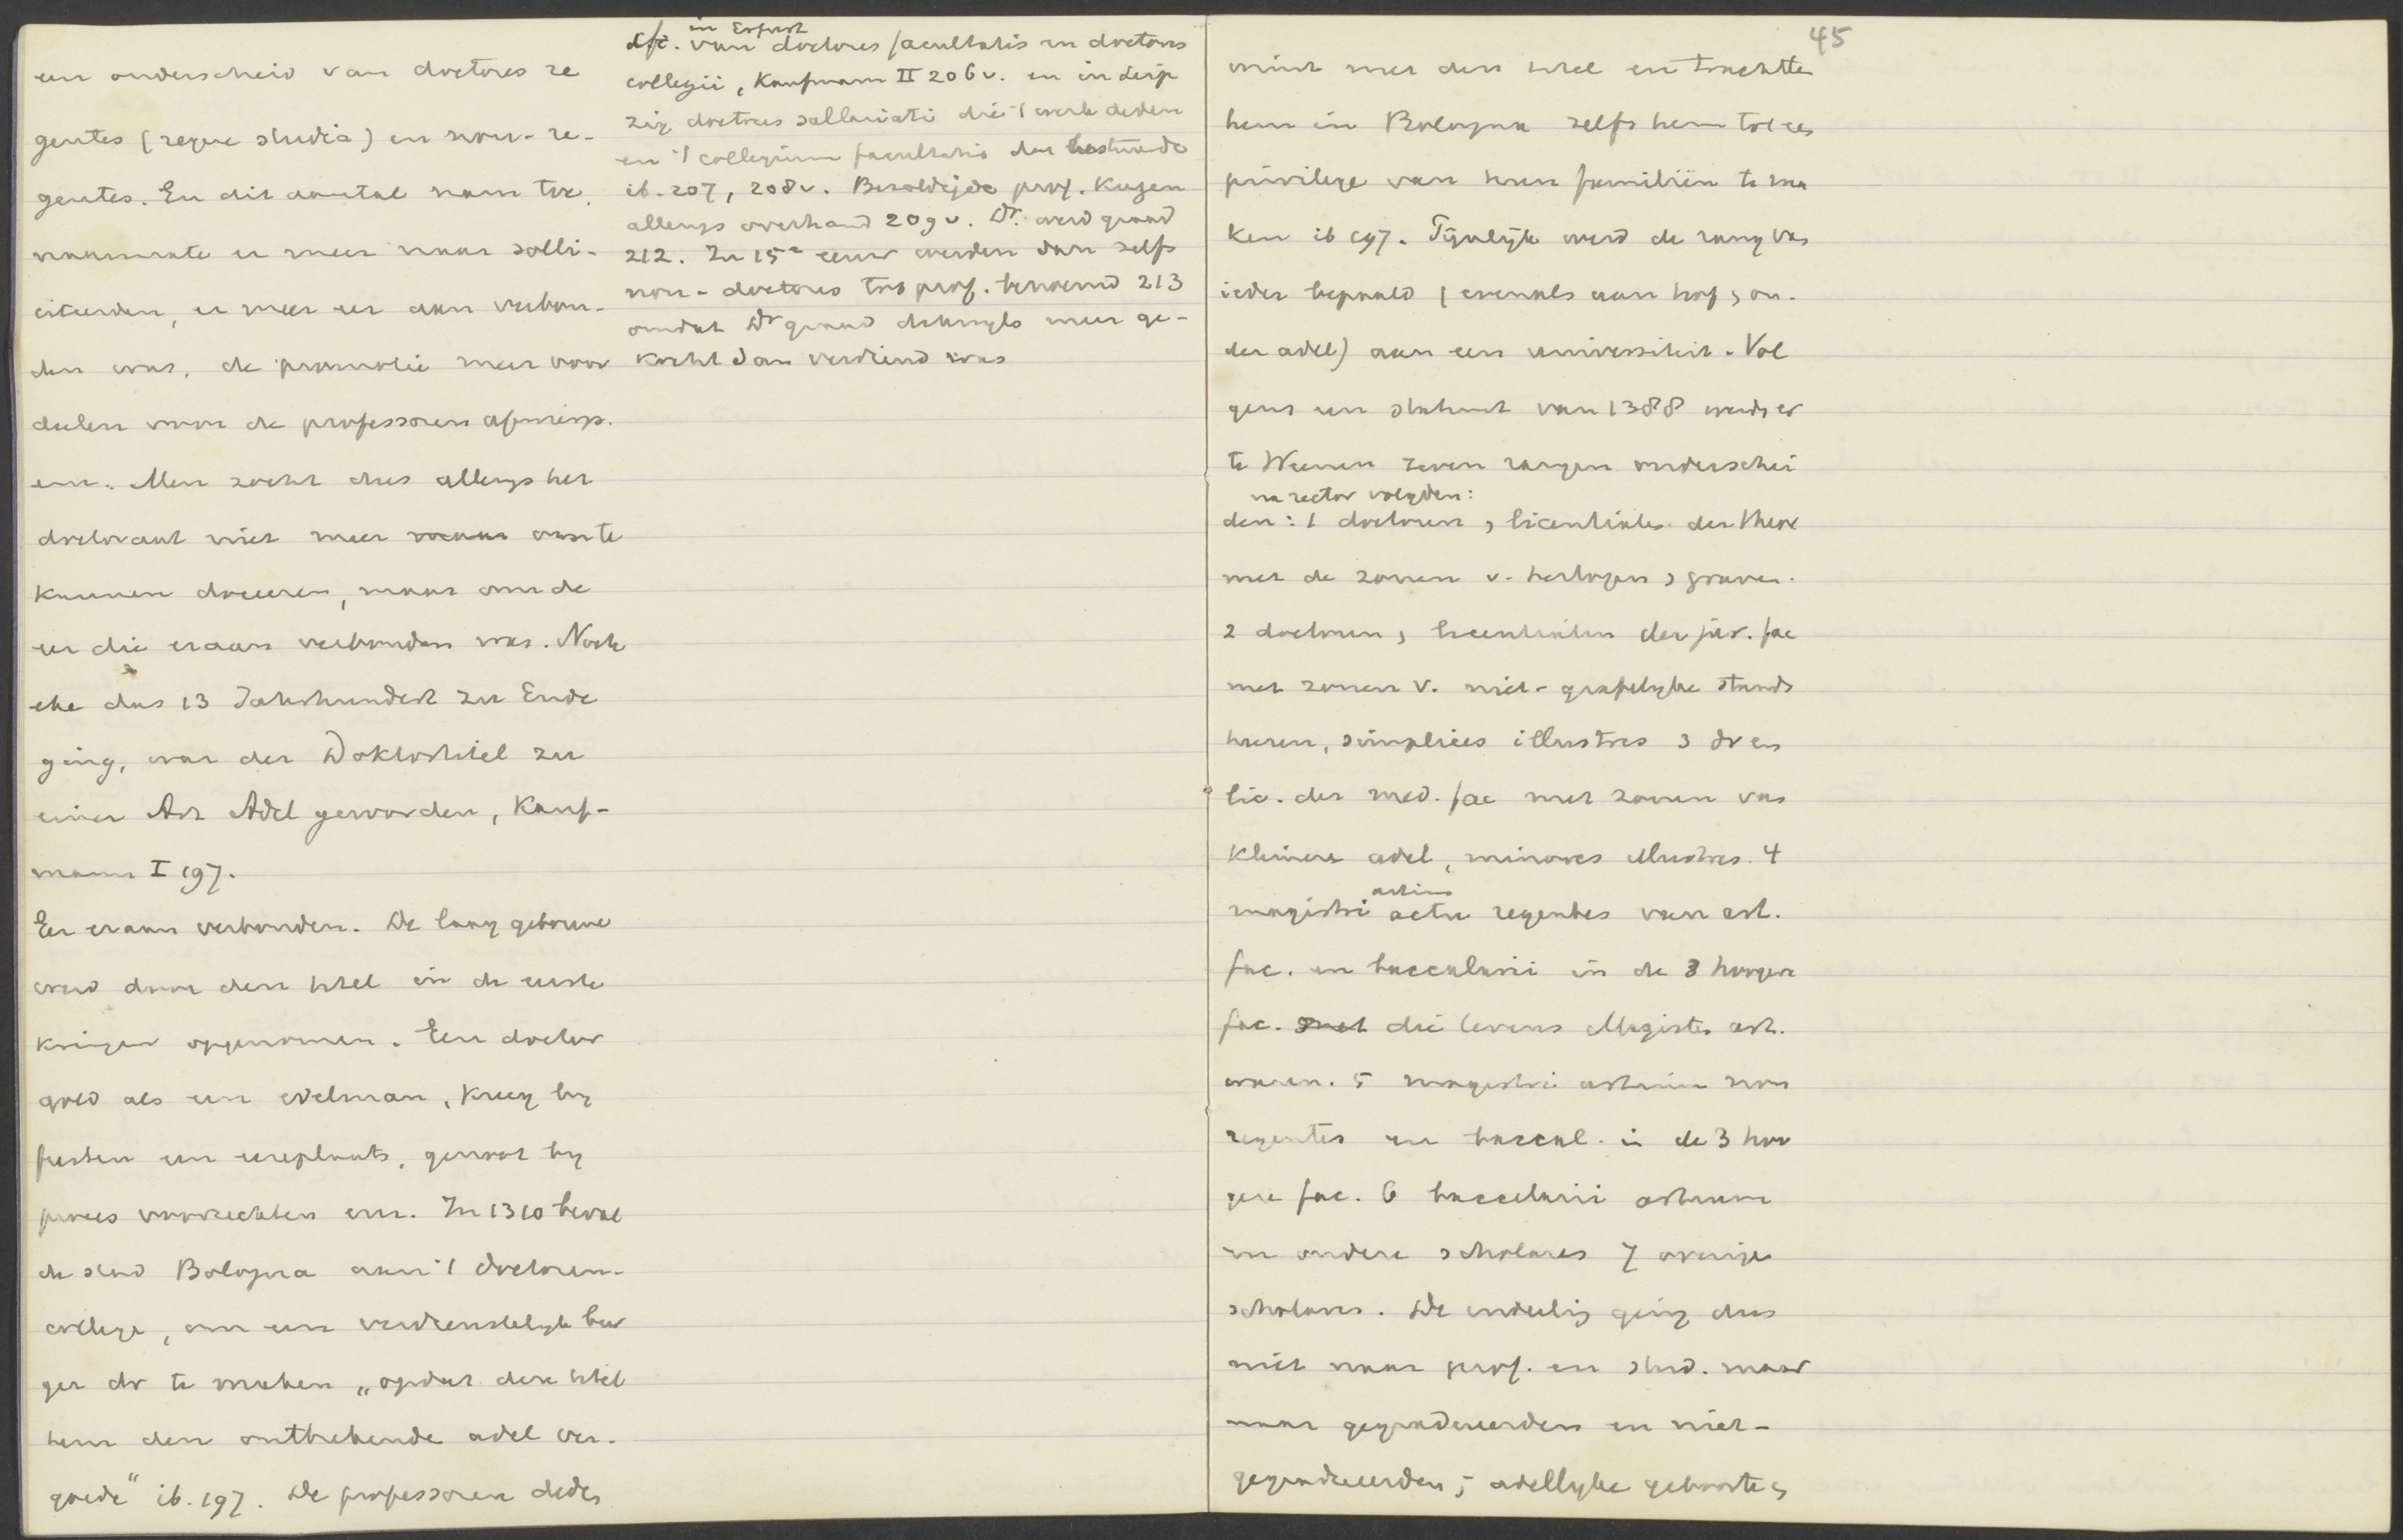 een onderscheid van doctores re
gentes (regere studia) en non-re-
gentes. En dit aantal nam toe,
naarmate er meer naar solli-
citeerden, er meer eer aan verbon-
den was, de promotie meer voor
deelen voor de professoren afwierp.
enz. Men zocht dus allengs het
doctoraat niet meer om te
kunnen doceeren, maar om de
eer die eraan verbonden was. Noch
ehe das 13 Jahrhundert zu Ende
ging, war der Doktortitel zu
einer Art Adel geworden, Kauf-
mann I 197.
Eer eraan verbonden. De laag geborene
werd door den titel in de eerste
kringen opgenomen. Een doctor
gold als een edelman, kreeg by
feesten een eereplaats, genoot by
proces voorrechten enz. In 1310 beval
de stad Bologna aan 't doctoren-
college, om een verdienstelyk bur
ger dr te maken „opdat deze titel
hem den ontbrekende adel ver-
goede" ib. 197. De professoren deden
cfr. in Erfurt van doctores facultatis en doctores
collegii, Kaufmann II 206 v. en in Leip
zig doctores sallariati die 't werk deden
en 't collegium facultatis dat bestuurde
ib. 207, 208 v. Bezoldigde prof. krijgen
allengs overhand 209 v. Dr. werd graad
212. In 15e eeuw werden dan zelfs
non-doctores tot prof. benoemd 213
omdat Dr graad dikwyls meer ge-
kocht dan verdiend was
45
winst met den titel en trachtten
hem in Bologna zelfs hem tot een
privilege van hun familiën te ma
ken ib 197. Tynlyk werd de rang van
ieder bepaald (evenals aan hof en on-
der adel) aan een universiteit. Vol
gens een statuut van 1388 werden er
te Weenen zeven rangen onderschei
na rector volgden:
den: 1 doctoren en licentiaten der theol
met de zonen v. hertogen en graven.
2 doctoren en licentiaten der jur. fac
met zonen v. niet-grafelyke stands
heeren, simplices illustres 3 dr en
lic. der med. fac met zonen van
kleinere adel, minores illustres. 4
magistri artium actu regentes van art.
fac. en baccalarii in de 3 hoogere
fac. die tevens Magister art.
waren. 5 magistri artium non
regentes en baccal. in de 3 hoo
gere fac. 6 baccelarii artium
en andere scholares 7 overige
scholares. De indeeling ging dus
niet naar prof. en stud. maar
naar gegradueerden en niet-
gegradueerden, adellyke geboorte en